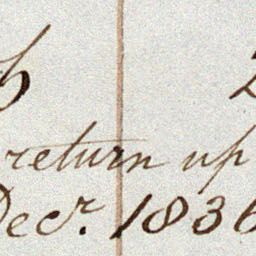 return up
Decr. 1836